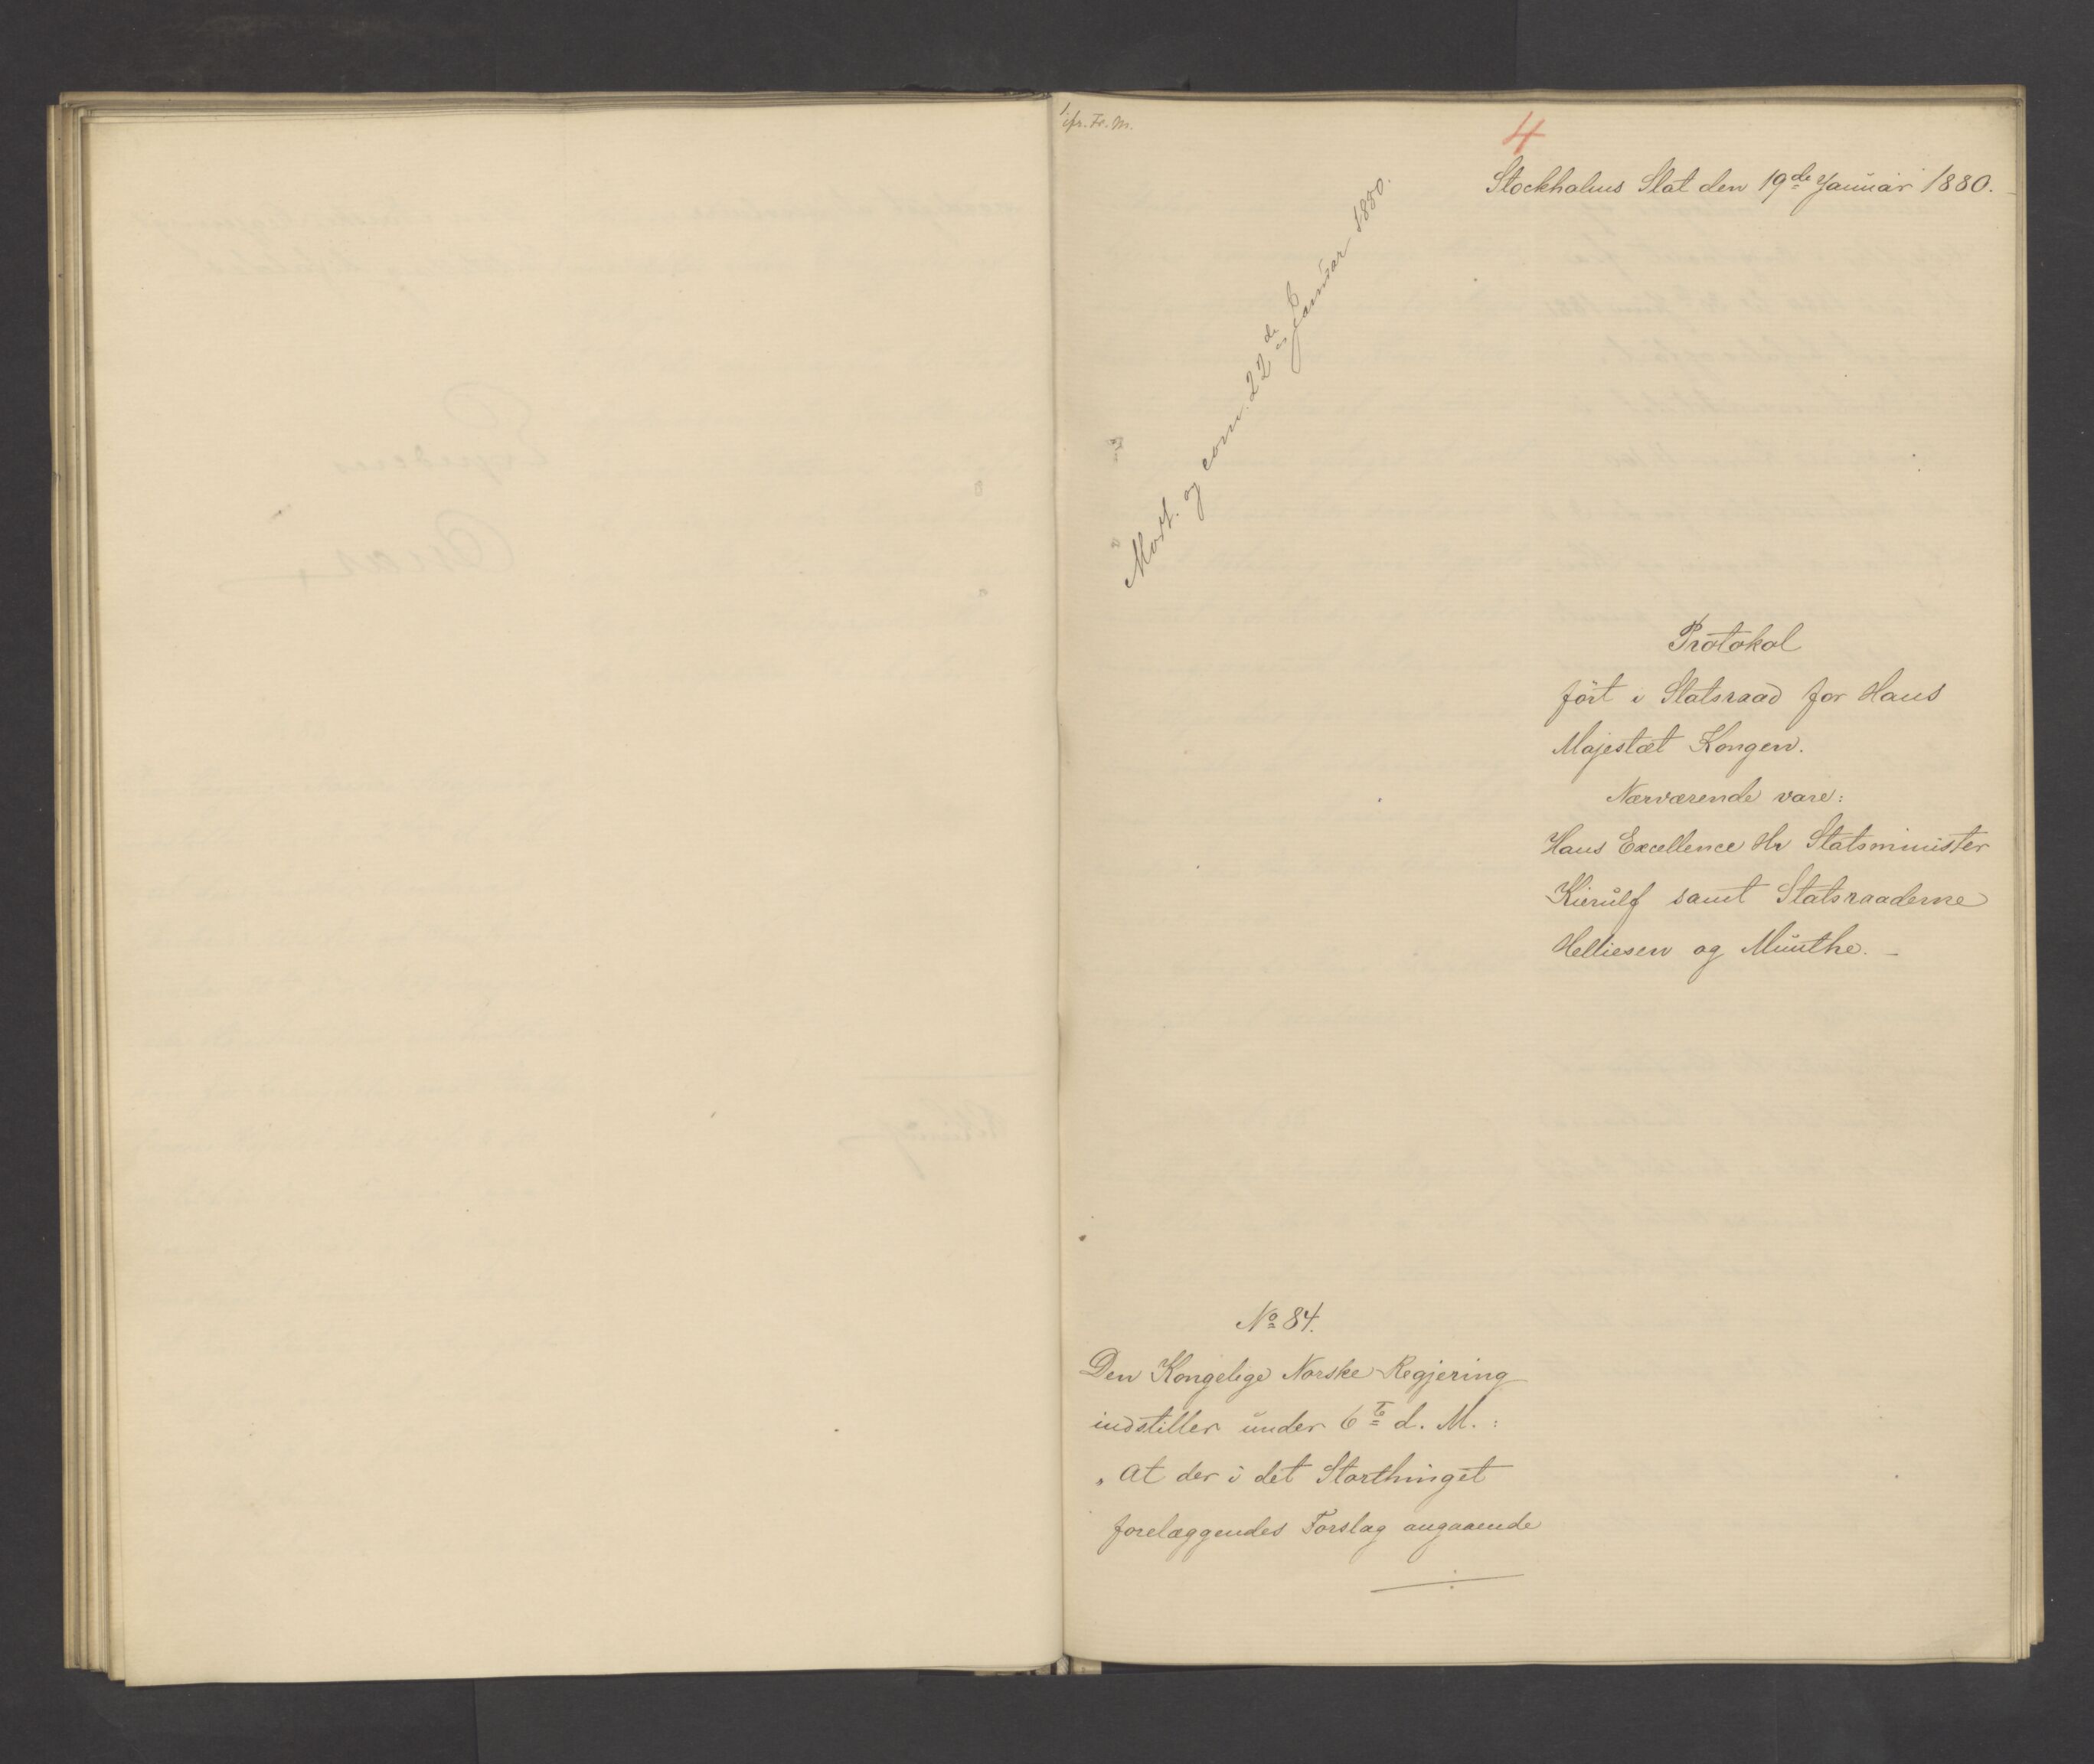 4
Stockholms Slot den 19de Januar 1880.
Modt. og com. 22de Januar 1880.
Protokol
ført i Statsraad for Hans
Majestæt Kongen.
Nærværende vare:
Hans Excellence Hr Statsminister
Kierulf samt Statsraaderne
Helliesen og Munthe. –
No 84.
Den Kongelige Norske Regjering
indstiller under 6te d. M. :
„At der i det Storthinget
forelæggendes Forslag angaaende